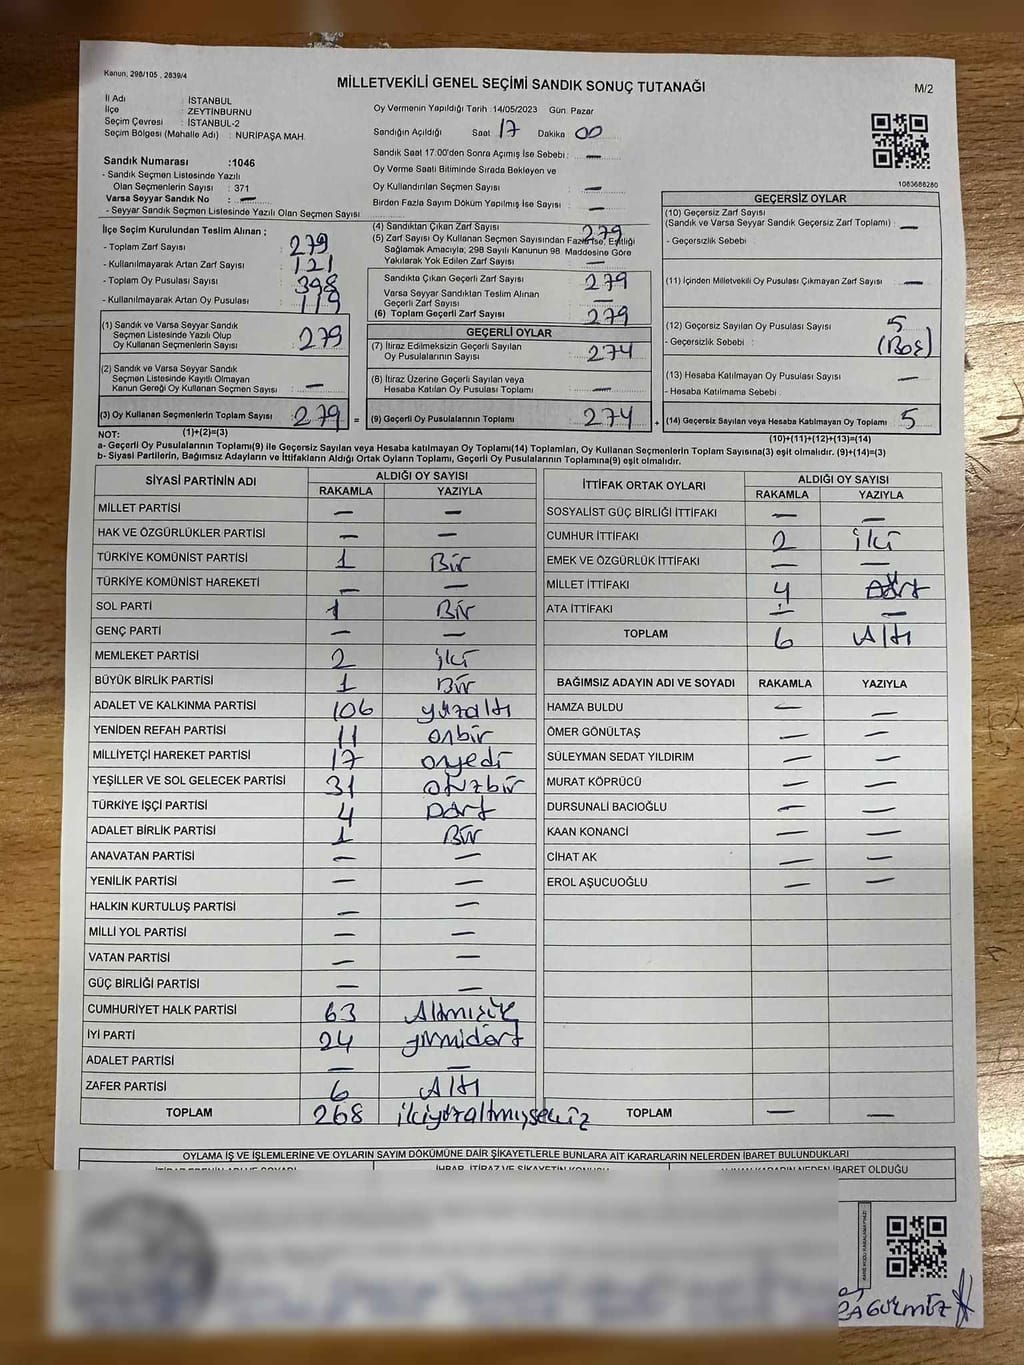 Kanun; 298/105 , 2839/4
MİLLETVEKİLİ GENEL SEÇİMİ SANDIK SONUÇ TUTANAĞI
M/2
İl Adı : İSTANBUL
İlçe : ZEYTİNBURNU
Seçim Çevresi : İSTANBUL-2
Seçim Bölgesi (Mahalle Adı) : NURİPAŞA MAH.
Sandık Numarası :1046
- Sandık Seçmen Listesinde Yazılı
Olan Seçmenlerin Sayısı : 371
Varsa Seyyar Sandık No : —
- Seyyar Sandık Seçmen Listesinde Yazılı Olan Seçmen Sayısı
Oy Vermenin Yapıldığı Tarih :14/05/2023 Gün: Pazar
Sandığın Açıldığı Saat 17 Dakika 00
Sandık Saat 17.00'den Sonra Açımış İse Sebebi : —
Oy Verme Saati Bitiminde Sırada Bekleyen ve
Oy Kullandırılan Seçmen Sayısı —
Birden Fazla Sayım Döküm Yapılmış İse Sayısı —
1083688280
İlçe Seçim Kurulundan Teslim Alınan ;
- Toplam Zarf Sayısı 279
- Kullanılmayarak Artan Zarf Sayısı 121
- Toplam Oy Pusulası Sayısı 398
- Kullanılmayarak Artan Oy Pusulası 119
(1) Sandık ve Varsa Seyyar Sandık
Seçmen Listesinde Yazılı Olup
Oy Kullanan Seçmenlerin Sayısı 279
(2) Sandık ve Varsa Seyyar Sandık
Seçmen Listesinde Kayıtlı Olmayan
Kanun Gereği Oy Kullanan Seçmen Sayısı —
(3) Oy Kullanan Seçmenlerin Toplam Sayısı 279 =
(1)+(2)=(3)
(4) Sandıktan Çıkan Zarf Sayısı 279
(5) Zarf Sayısı Oy Kullanan Seçmen Sayısından Fazla İse, Eşitliği
Sağlamak Amacıyla; 298 Sayılı Kanunun 98 Maddesine Göre
Yakılarak Yok Edilen Zarf Sayısı —
Sandıkta Çıkan Geçerli Zarf Sayısı 279
Varsa Seyyar Sandıktan Teslim Alınan
Geçerli Zarf Sayısı —
(6) Toplam Geçerli Zarf Sayısı 279
GEÇERLİ OYLAR
(7) İtiraz Edilmeksizin Geçerli Sayılan
Oy Pusulalarının Sayısı 274
(8) İtiraz Üzerine Geçerli Sayılan veya
Hesaba Katılan Oy Pusulası Toplamı —
(9) Geçerli Oy Pusulalarının Toplamı 274 +
GEÇERSİZ OYLAR
(10) Geçersiz Zarf Sayısı
(Sandık ve Varsa Seyyar Sandık Geçersiz Zarf Toplamı) : —
- Geçersizlik Sebebi
(11) İçinden Milletvekili Oy Pusulası Çıkmayan Zarf Sayısı —
(12) Geçersiz Sayılan Oy Pusulası Sayısı 5
- Geçersizlik Sebebi : (Boş)
(13) Hesaba Katılmayan Oy Pusulası Sayısı —
- Hesaba Katılmama Sebebi :
(14) Geçersiz Sayılan veya Hesaba Katılmayan Oy Toplamı 5
(10)+(11)+(12)+(13)=(14)
NOT:
a- Geçerli Oy Pusulasının Toplamı(9) ile Geçersiz Sayılan veya Hesaba katılmayan Oy Toplamı(14) Toplamları, Oy Kullanan Seçmenlerin Toplam Sayısına(3) eşit olmalıdır. (9)+(14)=(3)
b- Siyasi Partilerin, Bağımsız Adayların ve İttifakların Aldığı Ortak Oyların Toplamı, Geçerli Oy Pusulasının Toplamına(9) eşit olmalıdır.
SİYASİ PARTİNİN ADI ALDIĞI OY SAYISI
RAKAMLA YAZIYLA
MİLLET PARTİSİ — —
HAK VE ÖZGÜRLÜKLER PARTİSİ — —
TÜRKİYE KOMÜNİST PARTİSİ 1 Bir
TÜRKİYE KOMÜNİST HAREKETİ — —
SOL PARTİ 1 Bir
GENÇ PARTİ — —
MEMLEKET PARTİSİ 2 iki
BÜYÜK BİRLİK PARTİSİ 1 Bir
ADALET VE KALKINMA PARTİSİ 106 yüzaltı
YENİDEN REFAH PARTİSİ 11 onbir
MİLLİYETÇİ HAREKET PARTİSİ 17 onyedi
YEŞİLLER VE SOL GELECEK PARTİSİ 31 otuzbir
TÜRKİYE İŞÇİ PARTİSİ 4 Dört
ADALET BİRLİK PARTİSİ 1 Bir
ANAVATAN PARTİSİ — —
YENİLİK PARTİSİ — —
HALKIN KURTULUŞ PARTİSİ — —
MİLLİ YOL PARTİSİ — —
VATAN PARTİSİ — —
GÜÇ BİRLİĞİ PARTİSİ — —
CUMHURİYET HALK PARTİSİ 63
İYİ PARTİ 24 yirmidört
ADALET PARTİSİ — —
ZAFER PARTİSİ 6 Altı
TOPLAM 268 ikiyüzaltmışsekiz
İTTİFAK ORTAK OYLARI ALDIĞI OY SAYISI
RAKAMLA YAZIYLA
SOSYALİST GÜÇ BİRLİĞİ İTTİFAKI — —
CUMHUR İTTİFAKI 2 iki
EMEK VE ÖZGÜRLÜK İTTİFAKI — —
MİLLET İTTİFAKI 4 Dört
ATA İTTİFAKI — —
TOPLAM 6 Altı
BAĞIMSIZ ADAYIN ADI VE SOYADI RAKAMLA YAZIYLA
HAMZA BULDU — —
ÖMER GÖNÜLTAŞ — —
SÜLEYMAN SEDAT YILDIRIM — —
MURAT KÖPRÜCÜ — —
DURSUNALİ BACIOĞLU — —
KAAN KONANCİ — —
CİHAT AK — —
EROL AŞUCUOĞLU — —
TOPLAM — —
OYLAMA İŞ VE İŞLEMLERİNE VE OYLARIN SAYIM DÖKÜMÜNE DAİR ŞİKAYETLERLE BUNLARA AİT KARARLARIN NELERDEN İBARET BULUNDUKLARI
İTİRAZ EDENİN ADI VE SOYADI İHBAR, İTİRAZ VE ŞİKAYETİN KONUSU ALINAN KARARIN NEDEN İBARET OLDUĞU